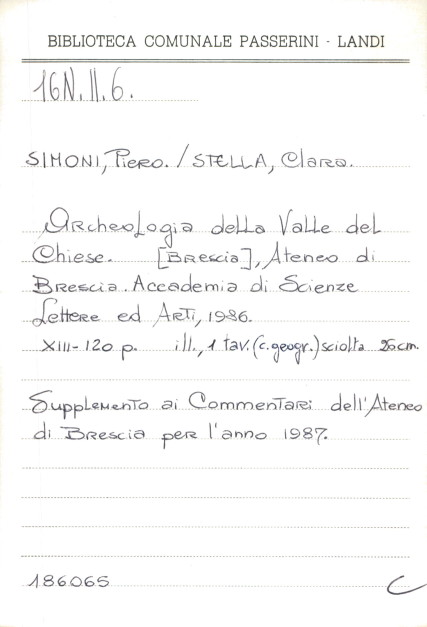 BIBLIOTECA COMUNALE PASSERINI - LANDI
16N.II.6.
SIMONI, Piero. / STELLA, Clara.
Archeologia della Valle del
Chiese. [Brescia], Ateneo di
Brescia. Accademia di Scienze
Lettere ed Arti, 1986.
XIII-120 p. ill., 1 tav. (c. geogr.) sciolta 26 cm.
Supplemento ai Commentari dell'Ateneo
di Brescia per l'anno 1987.
186065 C